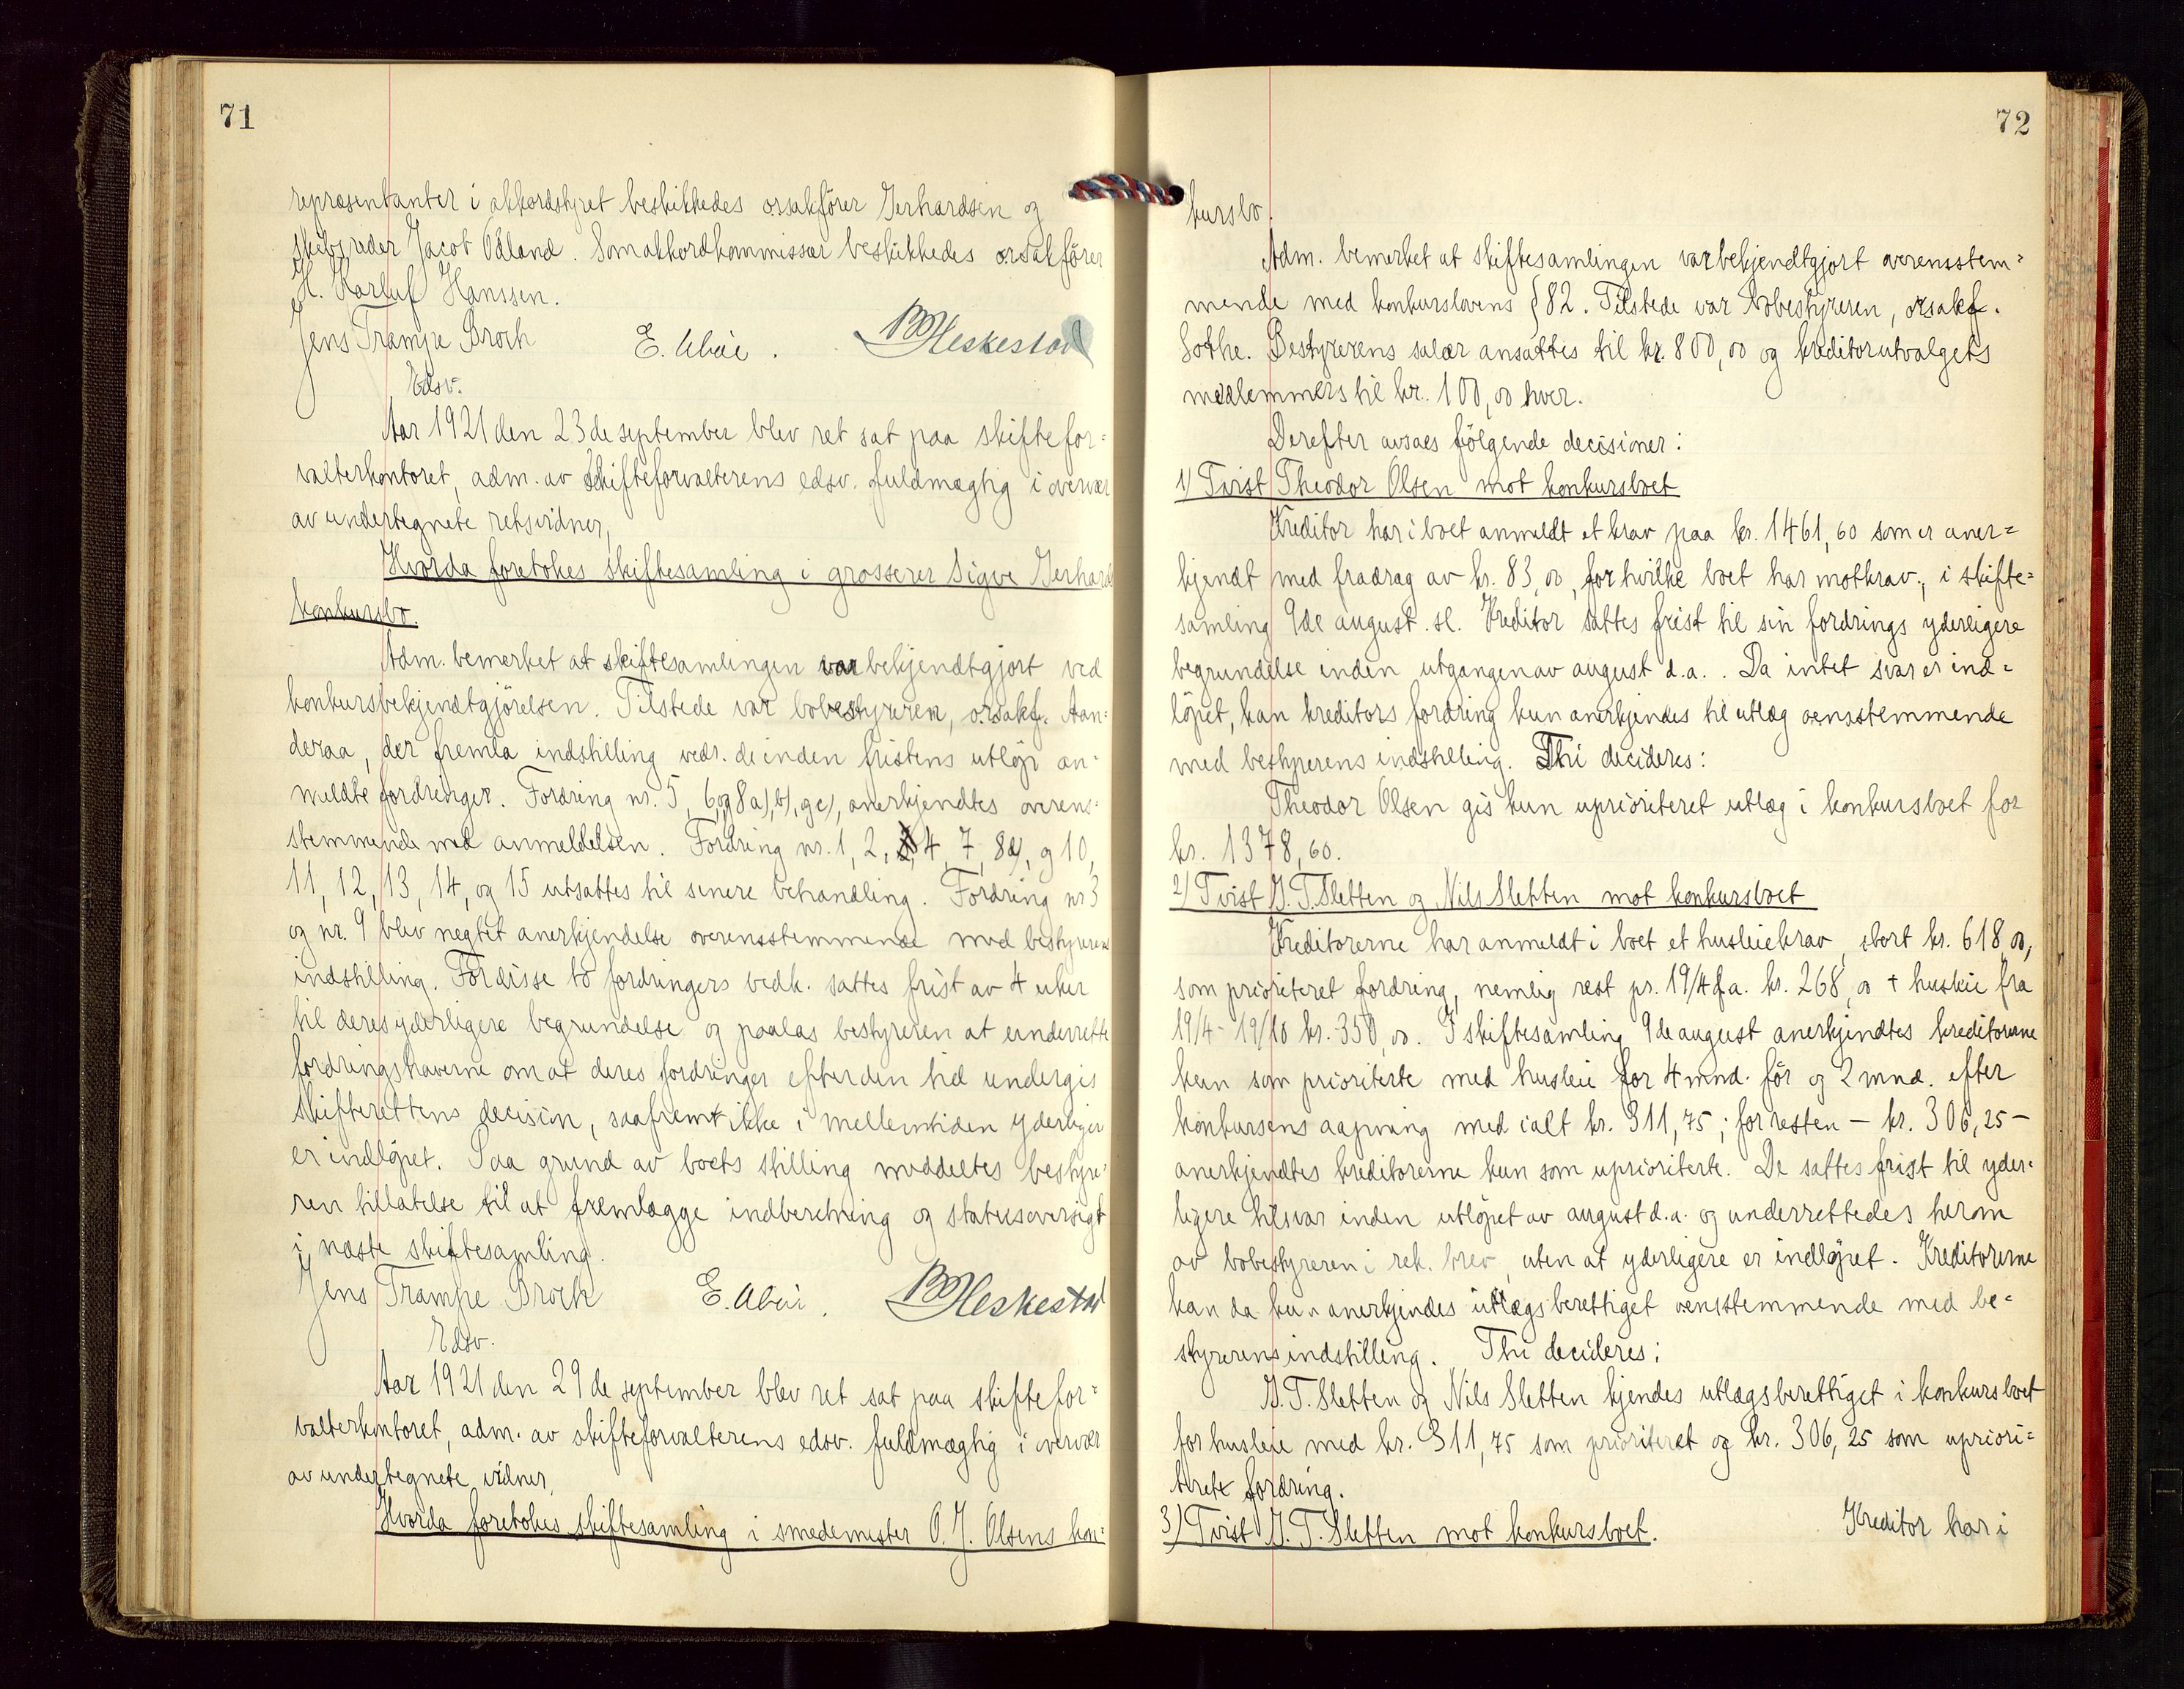 71
repræsentanter i akkordstyret beskikkedes orsakförer Gerhardsen og
skibsreder Jacob Ödland. Som akkordkommissær beskikkedes orsakförer
H. Karluf Hanssen.
Jens Trampe Broch E. Abai. B M Heskestad
Edsv.
Aar 1921 den 23de september blev ret sat paa skiftefor=
valterkontoret, adm. av Skifteforvalterens edsv. fuldmægtig i overvær
av undertegnete retsvidner,
Hvorda foretokes skiftesamling i grosserer Sigve Gerhards
konkursbo.
Adm. bemerket at skiftesamlingen var bekjendtgjort ved
konkursbekjendtgjörelsen. Tilstede var bobestyreren, orsakf. Aan=
deraa, der fremla indstilling vedr. de inden fristens utlöp an=
meldte fordringer. Fordring nr. 5, 6, og 8 a), b), og c), anerkjendtes overens=
stemmende med anmeldelsen. Fordring nr. 1, 2, 4, 7, 8d), og 10,
11, 12, 13, 14, og 15 utsattes til senere behandling. Fordring nr 3
og nr. 9 blev negtet anerkjendelse overensstemmende med bestyrerens
indstilling. For disse to fordringers vedk. sattes frist av 4 uker
til deres yderligere begrundelse og paalas bestyreren at underrette
fordringshaverne om at deres fordringer efter den tid undergis
skifterettens decision, saafremt ikke i mellemtiden yderliger
er indlöpet. Paa grund av boets stilling meddeltes bestyre=
ren tillatelse til at fremlægge indberetning og statusoversigt
i næste skiftesamling.
Jens Trampe Broch E. Abai. B M Heskestad
Edsv.
Aar 1921 den 29de september blev ret sat paa skiftefor=
valterkontoret, adm. av skifteforvalterens edsv. fuldmægtig i overvær
av undertegnete vidner,
Hvorda foretokes skiftesamling i smedemester O. J. Olsens kon=
72
kursbo.
Adm. bemerket at skiftesamlingen var bekjendtgjort overensstem=
mende med konkurslovens § 82. Tilstede var bobestyreren, orsakf.
Sothe. Bestyrerens salær ansattes til kr. 800,00 og kreditorutvalgets
medlemmers til kr. 100,00 hver.
Derefter avsaes fölgende decisioner:
1) Tvist Theodor Olsen mot konkursboet
Kreditor har i boet anmeldt et krav paa kr. 1461,60 som er aner=
kjendt med fradrag av kr. 83,00, for hvilke boet har motkrav, i skifte=
samling 9de august. sl. Kreditor sattes frist til sin fordrings yderligere
begrundelse inden utgangen av august d.a.. Da intet svar er ind=
löpet, kan kreditors fordring kun anerkjendes til utlæg overensstemmende
med bestyrerens indstilling. Thi decideres:
Theodor Olsen gis kun uprioriteret utlæg i konkursboet for
kr. 1378,60.
2) Tvist G. T. Sletten og Nils Sletten mot konkursboet
Kreditorerne har anmeldt i boet et husleiekrav, stort kr. 618,00,
som prioriteret fordring, nemlig rest pr. 19/4 f.a. kr. 268,00 + husleie fra
19/4 - 19/10 kr. 350,00. I skiftesamling 9de august anerkjendtes kreditorerne
kun som prioriterte med husleie for 4 mnd. för og 2 mnd. efter
konkursens aapning med ialt kr. 311,75; for resten — kr. 306,25 —
anerkjendtes kreditorerne kun som uprioriterte. De sattes frist til yder=
ligere tilsvar inden utlöpet av august d.a. og underrettedes herom
av bobestyreren i rek. brev, uten at yderligere er indlöpet. Kreditorerne
kan da kun anerkjendes utlægsberettiget overensstemmende med be=
styrerens indstilling. Thi decideres:
G. T. Sletten og Nils Sletten kjendes utlægsberettiget i konkursboet
for husleie med kr. 311,75 som prioriteret og kr. 306,25 som upriori=
teret fordring.
3) Tvist G. T. Sletten mot konkursboet. Kreditor har i